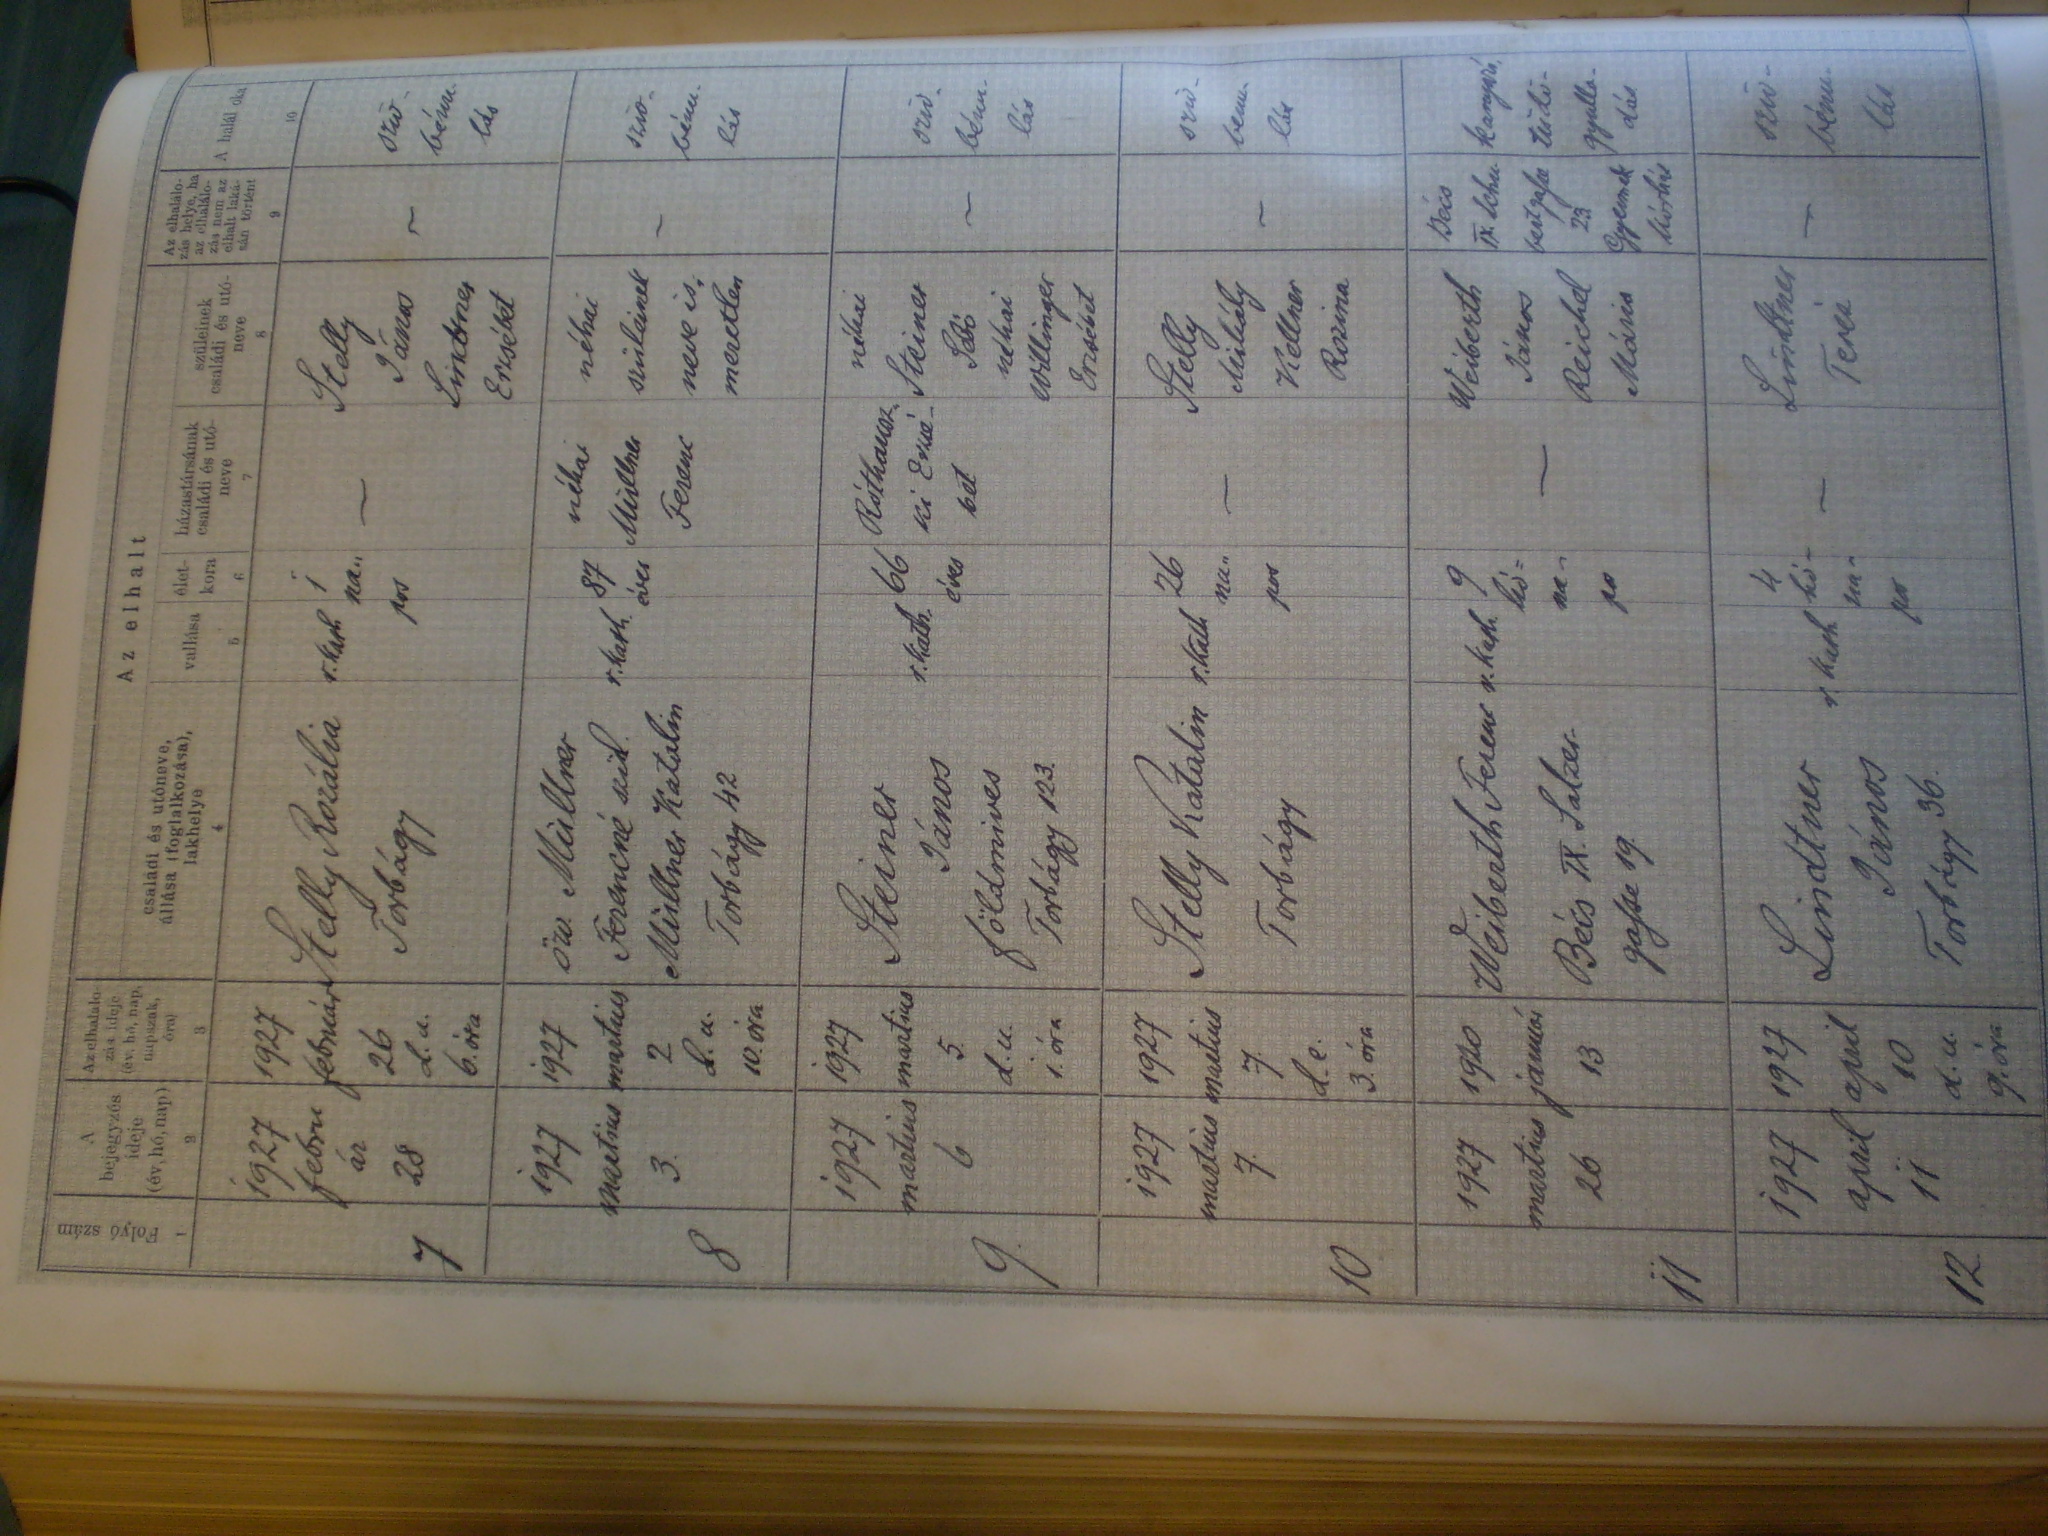 Folyó szám
1
A
bejegyzés
ideje
(év, hó, nap)
2
Az elhalálo-
zás ideje
(év, hó, nap,
napszak,
óra)
3
Az elhalt
családi és utóneve,
állása (foglalkozása),
lakhelye
4
vallása
5
élet-
kora
6
házastársának
családi és utó-
neve
7
szüleinek
családi és utó-
neve
8
Az elhalálo-
zás helye, ha
az elhalálo-
zás nem az
elhalt laká-
sán történt
9
A halál oka
10
7
1927
febru
ár
28
1927
február
26
d.u.
6. óra
Stelly Rozália
Torbágy
r. kath
1
na"
pos
—
Stelly
János
Lindtner
Erzsébet
~
szív-
bénu-
lás
8
1927
martius
3.
1927
martius
2
d.u.
10. óra
özv. Müllner
Ferencné szül.
Müllner Katalin
Torbágy 42
r. kath.
87
éves
néhai
Müllner
Ferenc
néhai
szüleinek
neve is-
meretlen
~
szív-
bénu-
lás
9.
1927
martius
6
1927
martius
5.
d.u.
1. óra
Steiner
János
földmives
Torbágy 123.
r. kath.
66
éves
Erzsé-
bet
néhai
Steiner
néhai
Willinger
Erzsébet
~
szív-
bénu-
lás
10
1927
martius
7.
1927
martius
7.
d.e.
3. óra
Stelly Katalin
Torbágy
r. kath
26
na"
pos
—
Stelly
Mihály
Kellner
Rozina
~
szív-
benu-
lás
11
1927
martius
26
1920
január
13
Weiberth Ferenc
Bécs IX. Salzer-
gasse 19.
r. kath.
9
hó=
na-
po
—
Weiberth
János
Reichel
Mária
Bécs
IX.
23
Gyermek
kórház
kanyaró,
tüdő-
gyulla-
dás
12
1927
april
11
1927
april
10
d.u.
9. óra
Lindtner
János
Torbágy 36.
r. kath
4
hó-
na-
pos
—
Lindtner
Teréz
—
szív-
bénu-
lás